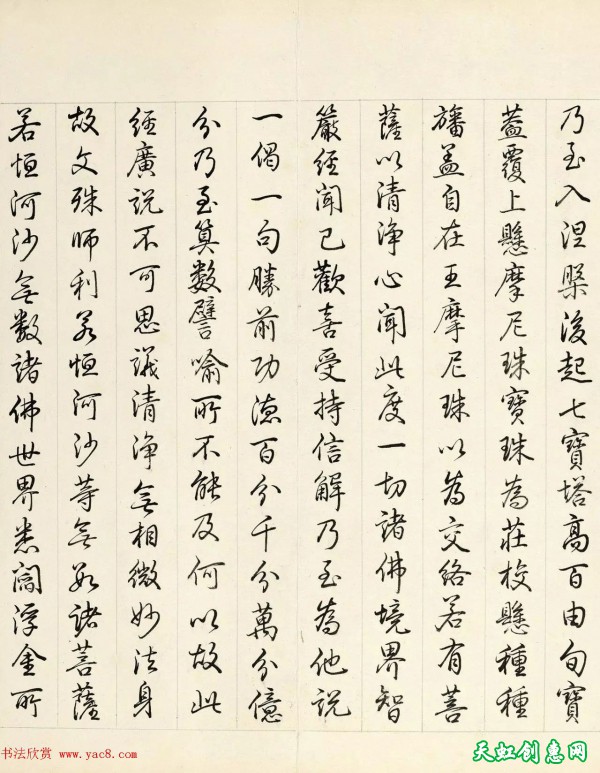 乃至入涅槃後起七寶塔高百由旬寶
葢覆上懸摩尼珠寶珠為莊校懸種種
旛盖自在王摩尼珠以為交絡若有菩
薩以清淨心聞此度一切諸佛境界智
嚴經聞已歡喜受持信解乃至為他說
一偈一句勝前功德百分千分萬分億
分乃至算數譬喻所不能及何以故此
經廣說不可思議清淨無相微妙法身
故文殊師利若恒河沙等無數諸菩薩
若恒河沙無數諸佛世界悉閻浮金所
书法欣赏 www.yac8.com
天虹创惠网